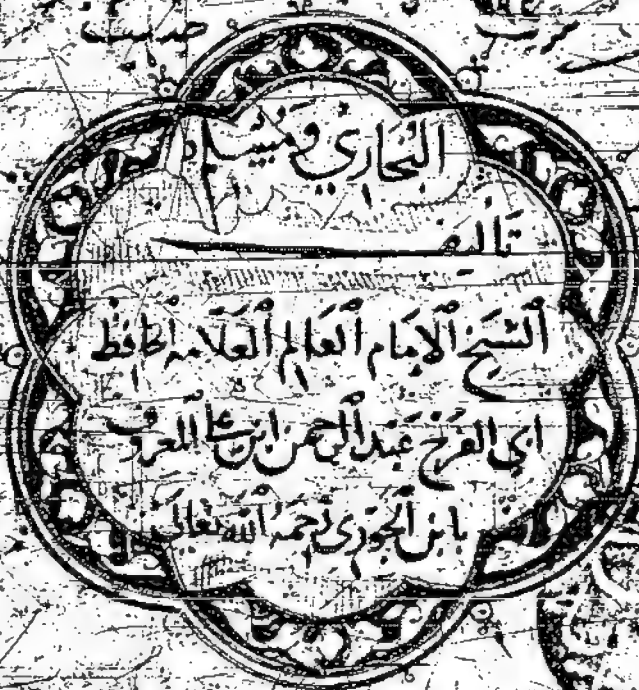 البخاري ومسلم
تأليف
الشيخ الامام العالم العلامه الحافظ
ابي الفرج عبد الرحمن ابن علي المعروف
بابن الجوزي رحمه الله تعالى